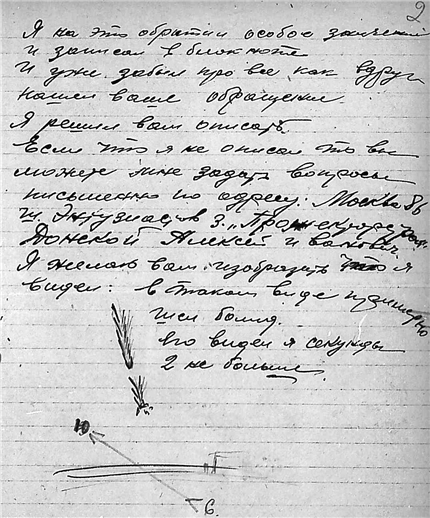 2
Я на это обратил особое значение
и записал в блокноте
И уже забыл про все как вдруг
нашел ваше обращение.
Я решил вам описать.
Если что я не описал то вы
можете мне задать вопросы
письменно по адресу: Москва
ш. Энтузиастов 3. „
Донской Алексей Иванович.
Я желаю вам изобразить что я
видел: в таком виде
болид.
Его видел я секунды
2 не больше
Ю
С.